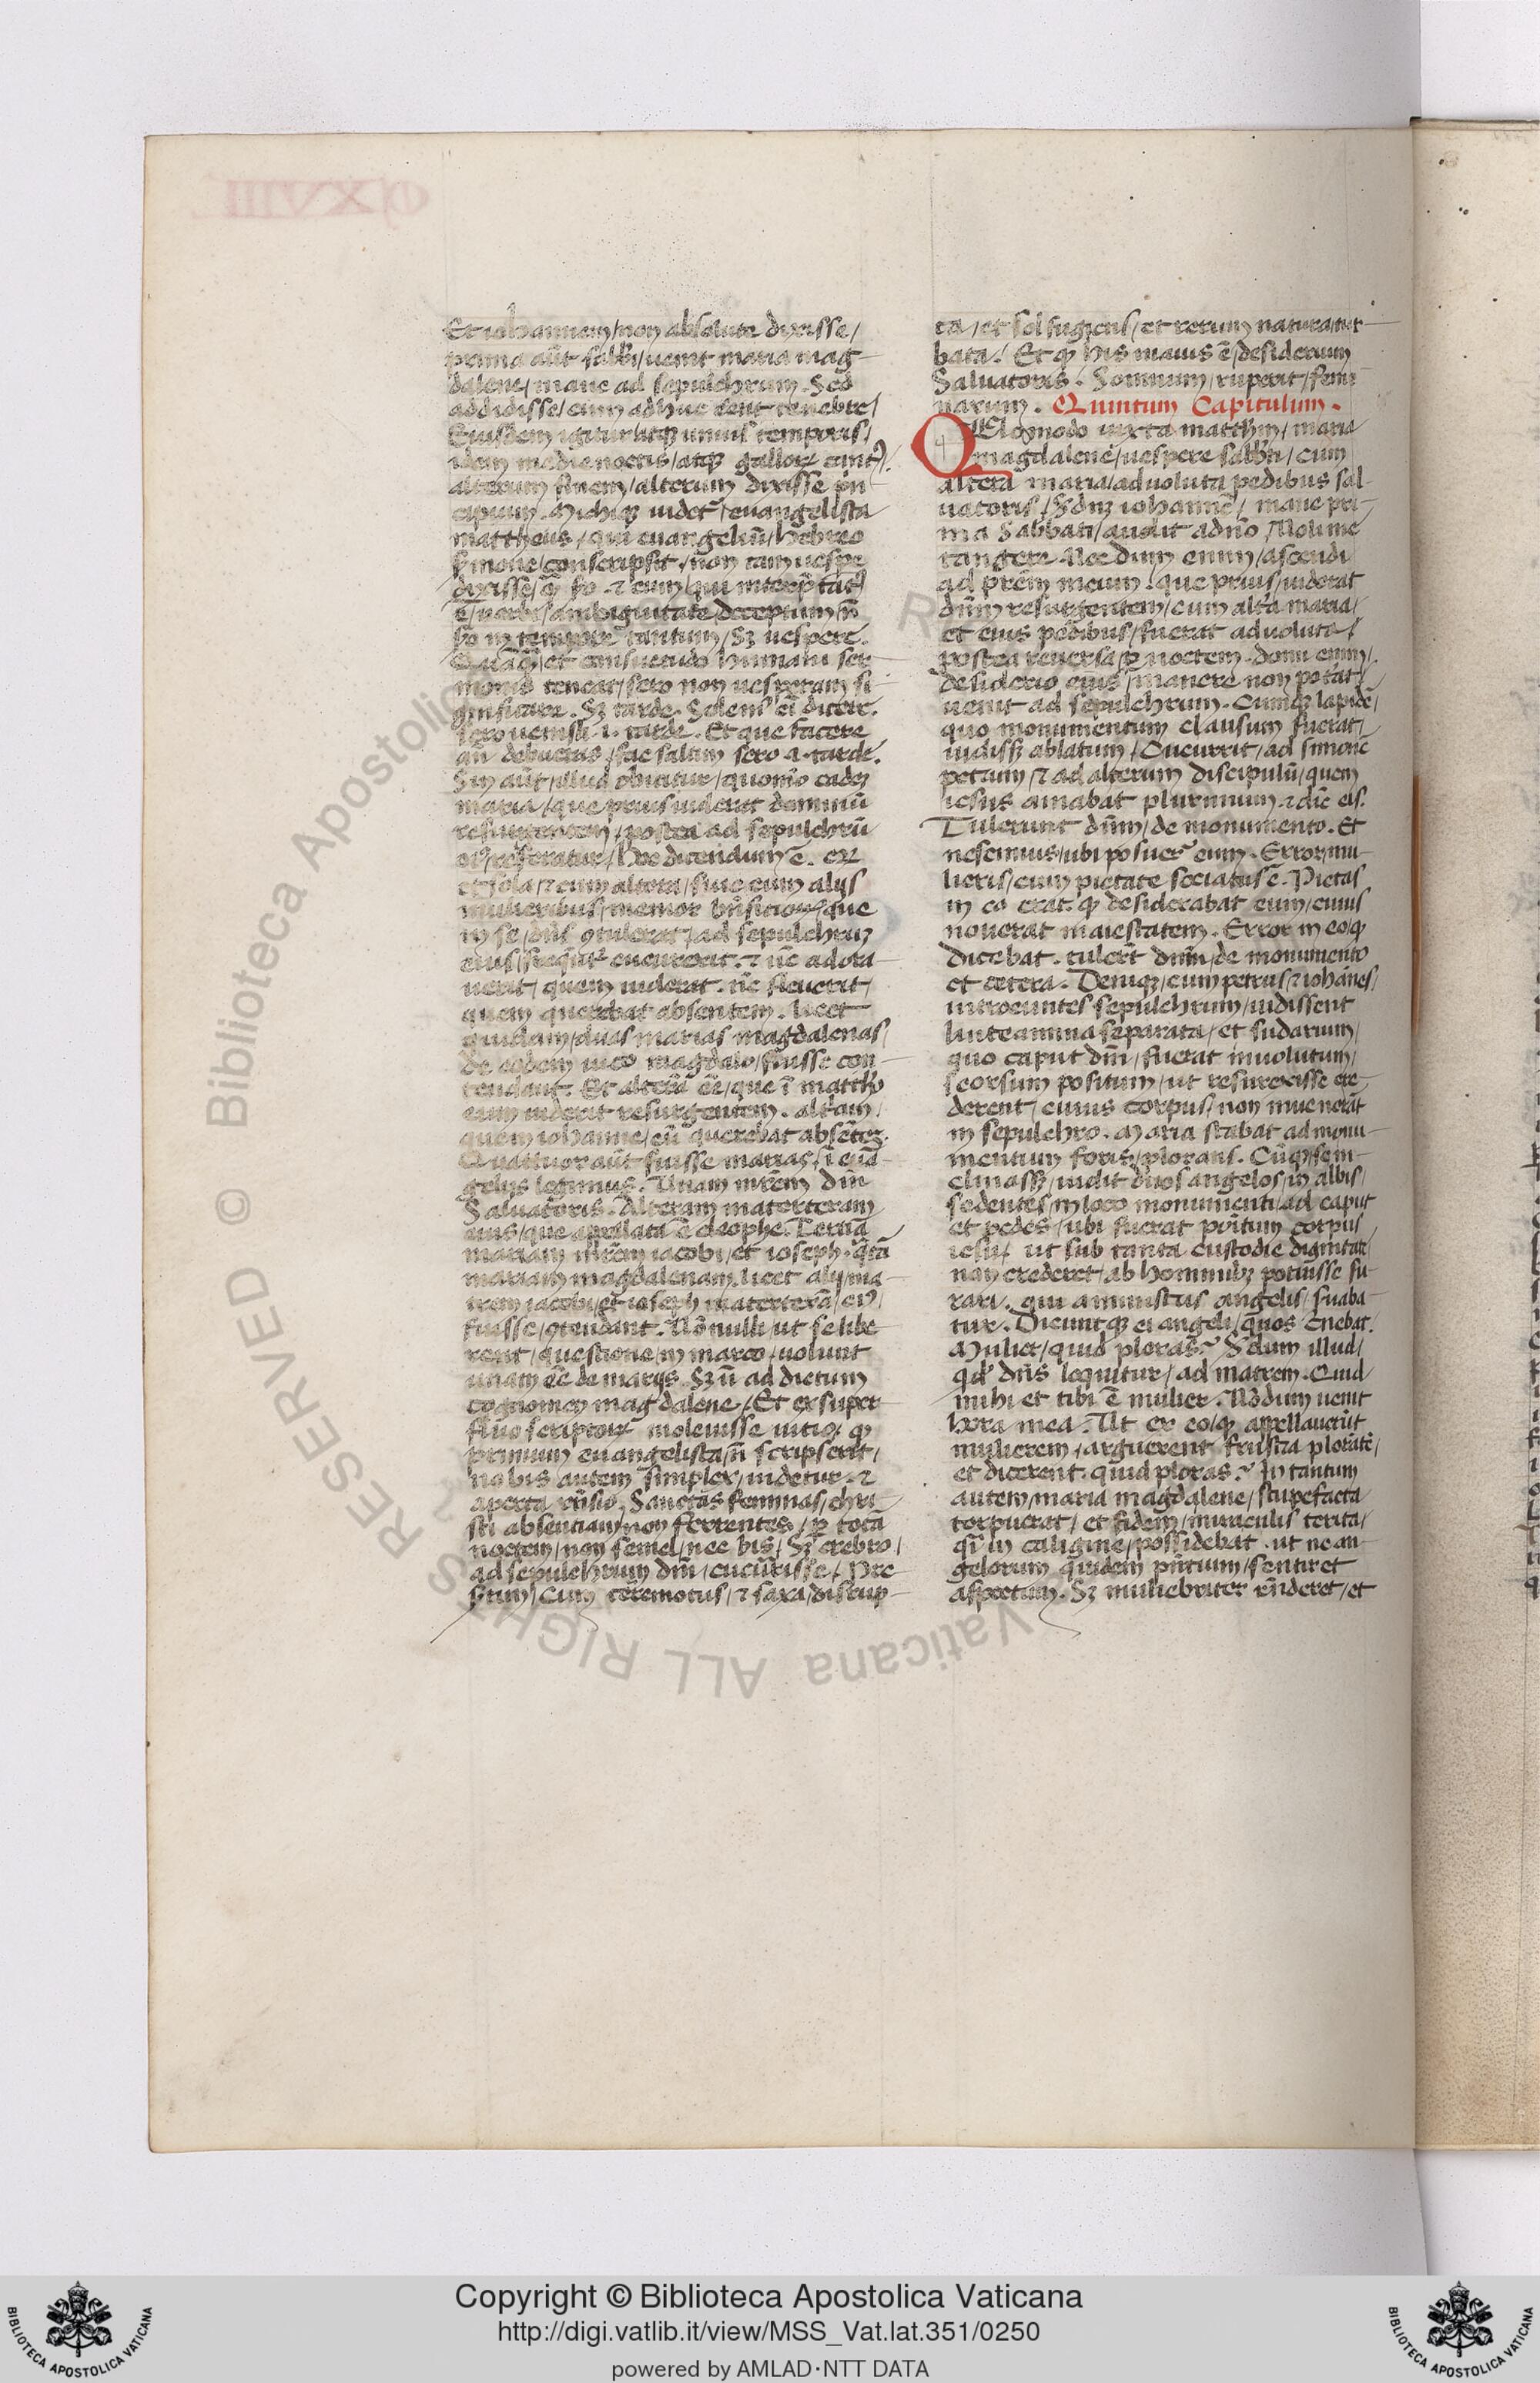 Et iohannem/non absolute dixisse/
prima aũt sabb̃i/uenit maria mag-
dalene/mane ad sepulchrum. Sed
addidisse/cum adhuc eẽnt tenebre/
Eiusdem igitur/atqꝫ unius temporis/
idem medie noctis/atqꝫ galloꝝ cant⁹/.
alterum finem/alterum dixisse p̃n-
cipium. Michiqꝫ uidet᷑/euangelista
mattheus/qui euangeliũ/hebreo
ẜmone/conscripsit/non tam uespe
dixisse/q̃ ẜo. ⁊ eum/qui interp̃tat⁹
ẽ/uerbi/ambiguitate/deceptum/ñ
ẜo in tempore tantum/Sꝫ uespere.
Quãq̃/et consuetudo humani ser-
monis teneat/sero non uesperam si-
gnificare. Sꝫ tarde. Solem⁹ ẽi dicere.
Sero uenisti .i. tarde. Et que facere
an̄ debueras/fac saltim sero .i. tarde.
Sin aũt/illud obicitur/quom̃o eadeꝫ
maria/que prius uiderat dominũ
resurgentem/postea ad sepulchrũ
ei⁹/referatur/hoc dicendum ẽ. eꝝ
et sola/⁊ cum altera/siue cum alijs
mulieribus/memor bñficioꝝ/que
in se/dñs ꝯtulerat/ad sepulchruꝫ
eius/freq̃nt᷑ cucurrerit. ⁊ nc̃ adora-
uerit/quem uiderat. nc̃ fleuerit/
quem querebat absentem. licet
quidam/duas marias magdalenas/
de eodem uico magdalo/fuisse con-
tendant. Et alterã eẽ/que ĩ matth̃o
eum uiderit resurgentem. alt̃am/
quem iohanne/eũ querebat absẽteꝫ.
Quattuor aũt fuisse marias/ĩ euã-
gelijs legimus. Unam mr̃em dñi
Saluatoris. Alteram materteram
eius/que appellata ẽ cleophe. Terciã
mariam mr̃em iacobi/et ioseph. q̃rtã
mariam magdalenam. licet alij/ma-
trem iacobi/et ioseph materterã/ei⁹/
fuisse/ꝯtendant. Nõnulli/ut se libe-
rent/questione/in marco/uolunt
unam eẽ de marijs. Sꝫ ñ ad dictum
cognomen magdalene/Et ex super-
fluo scriptoꝝ moleuisse uitio/qꝫ
primum euangelista/ñ scripserit/
nobis autem simplex/uidetur. ⁊
aperta rñsio. Sanctas feminas/chri-
sti absentiam/non ferrentes/ꝑ totã
noctem/non semel/nec bis/Sꝫ crebro/
ad sepulchrum dñi/cucurrisse/Pre-
sertim/Cum terremotus/⁊ saxa/disrup-
ta/et sol fugiens/et rerum natura/tur-
bata. Et qꝫ his maius ẽ/desiderium
Saluatoris. Somnum/ruperit/femi-
narum. Quintum Capitulum.
QUomodo iuxta matth̃m/maria
magdalene/uespere sabb̃ti/cum
altera maria/aduoluta pedibus sal-
uatoris/Scd̃ꝫ iohannẽ/mane pri-
ma Sabbati/audit a dño/Noli me
tangere. Nec dum enim/ascendi
ad p̃rem meum. que prius/uiderat
dñm resurgentem/cum alt̃a maria/
et eius pedibus/fuerat aduoluta/
postea reuersa/ꝑ noctem. domi enim/
desiderio eius/manere non pot̃at/
uenit ad sepulchrum. Cumqꝫ lapidẽ/
quo monumentum clausum fuerat/
uidissꝫ ablatum/Cucurrit/ad simonẽ
petrum/⁊ ad alterum discipulũ/quem
iesus amabat plurimum. ⁊ dic̃ eis.
Tulerunt dñm/de monumento. Et
nescimus/ubi posuer̃ eum. Error/mu-
lieris/cum pietate sociatus ẽ. Pietas
in eo erat. qꝫ desiderabat eum/cuius
nouerat maiestatem. Error in eo/qꝫ
dicebat. tuler̃t dñm/de monumento
et cetera. Deniqꝫ/cum petrus/⁊ iohãnes/
introeuntes sepulchrum/uidissent
linteamina separata/et sudarium/
quo caput dñi/fuerat inuolutum/
seorsum positum/ut resurexisse cre-
derent/cuius corpus/non inuenerãt
in sepulchro. Maria stabat ad monu-
mentum foris/plorans. Cũqꝫ/se in-
clinassꝫ/uidit duos angelos/in albis/
sedentes/in loco monumenti/ad caput
et pedes/ubi fuerat poĩtum corpus
iesu/ut sub tanta custodie dignitate/
non crederet/ab hominibꝫ potuisse fu-
rari. qui a ministris angelis/ẜuaba-
tur. Dicuntqꝫ ei angeli/quos c̃nebat.
Mulier/quid ploras? Scd̃um illud/
qd̃ dñs loquitur/ad matrem. Quid
mihi et tibi ẽ mulier. Nõdum uenit
hora mea. Ut ex eo/qꝫ appellauerũt
mulierem/arguerent frustra plorãtẽ/
et dicerent. quid ploras? In tantum
autem/maria magdalene/stupefacta
torpuerat/et fidem/miraculis territa/
q̃i in caligine/possidebat. ut ne an-
gelorum quidem pñtium/sentiret
aspectum. Sꝫ muliebriter rñderet/et
Copyright © Biblioteca Apostolica Vaticana
http://digi.vatlib.it/view/MSS_Vat.lat.351/0250
powered by AMLAD·NTT DATA